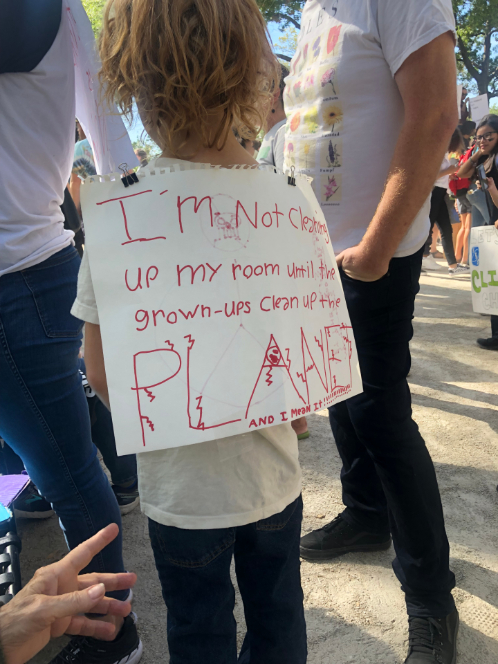 I'm Not Cleaning
up my room until the
grown-ups clean up the
PLANET
AND I MEAN IT!!!!!!!!!!
CLI